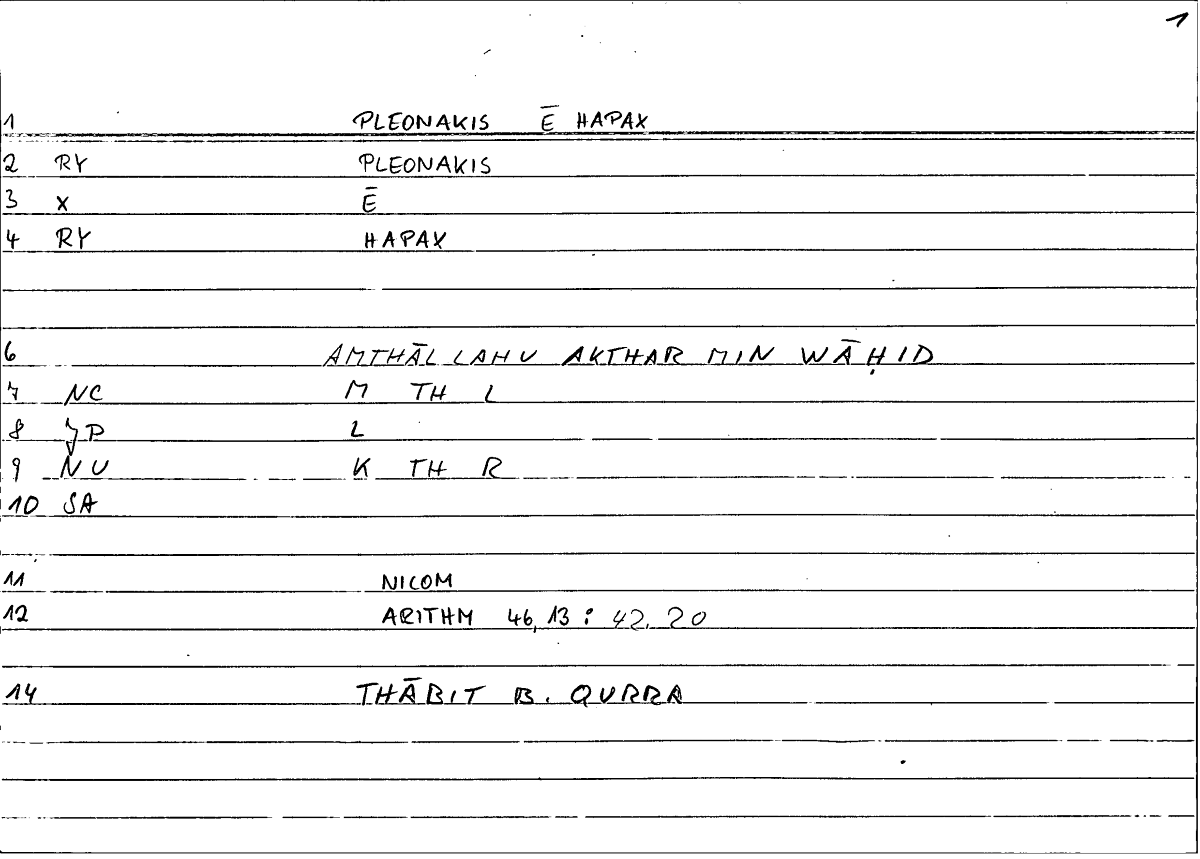 1
1 PLEONAKIS Ē HAPAX
2 RY PLEONAKIS
3 X Ē
4 RY HAPAX
6 AMTHĀL LAHU AKTHAR MIN WĀḤID
7 NC M TH L
8 JP L
9 NU K TH R
10 SA
11 NICOM
12 ARITHM 46,13 : 42,20
14 THĀBIT B. QURRA